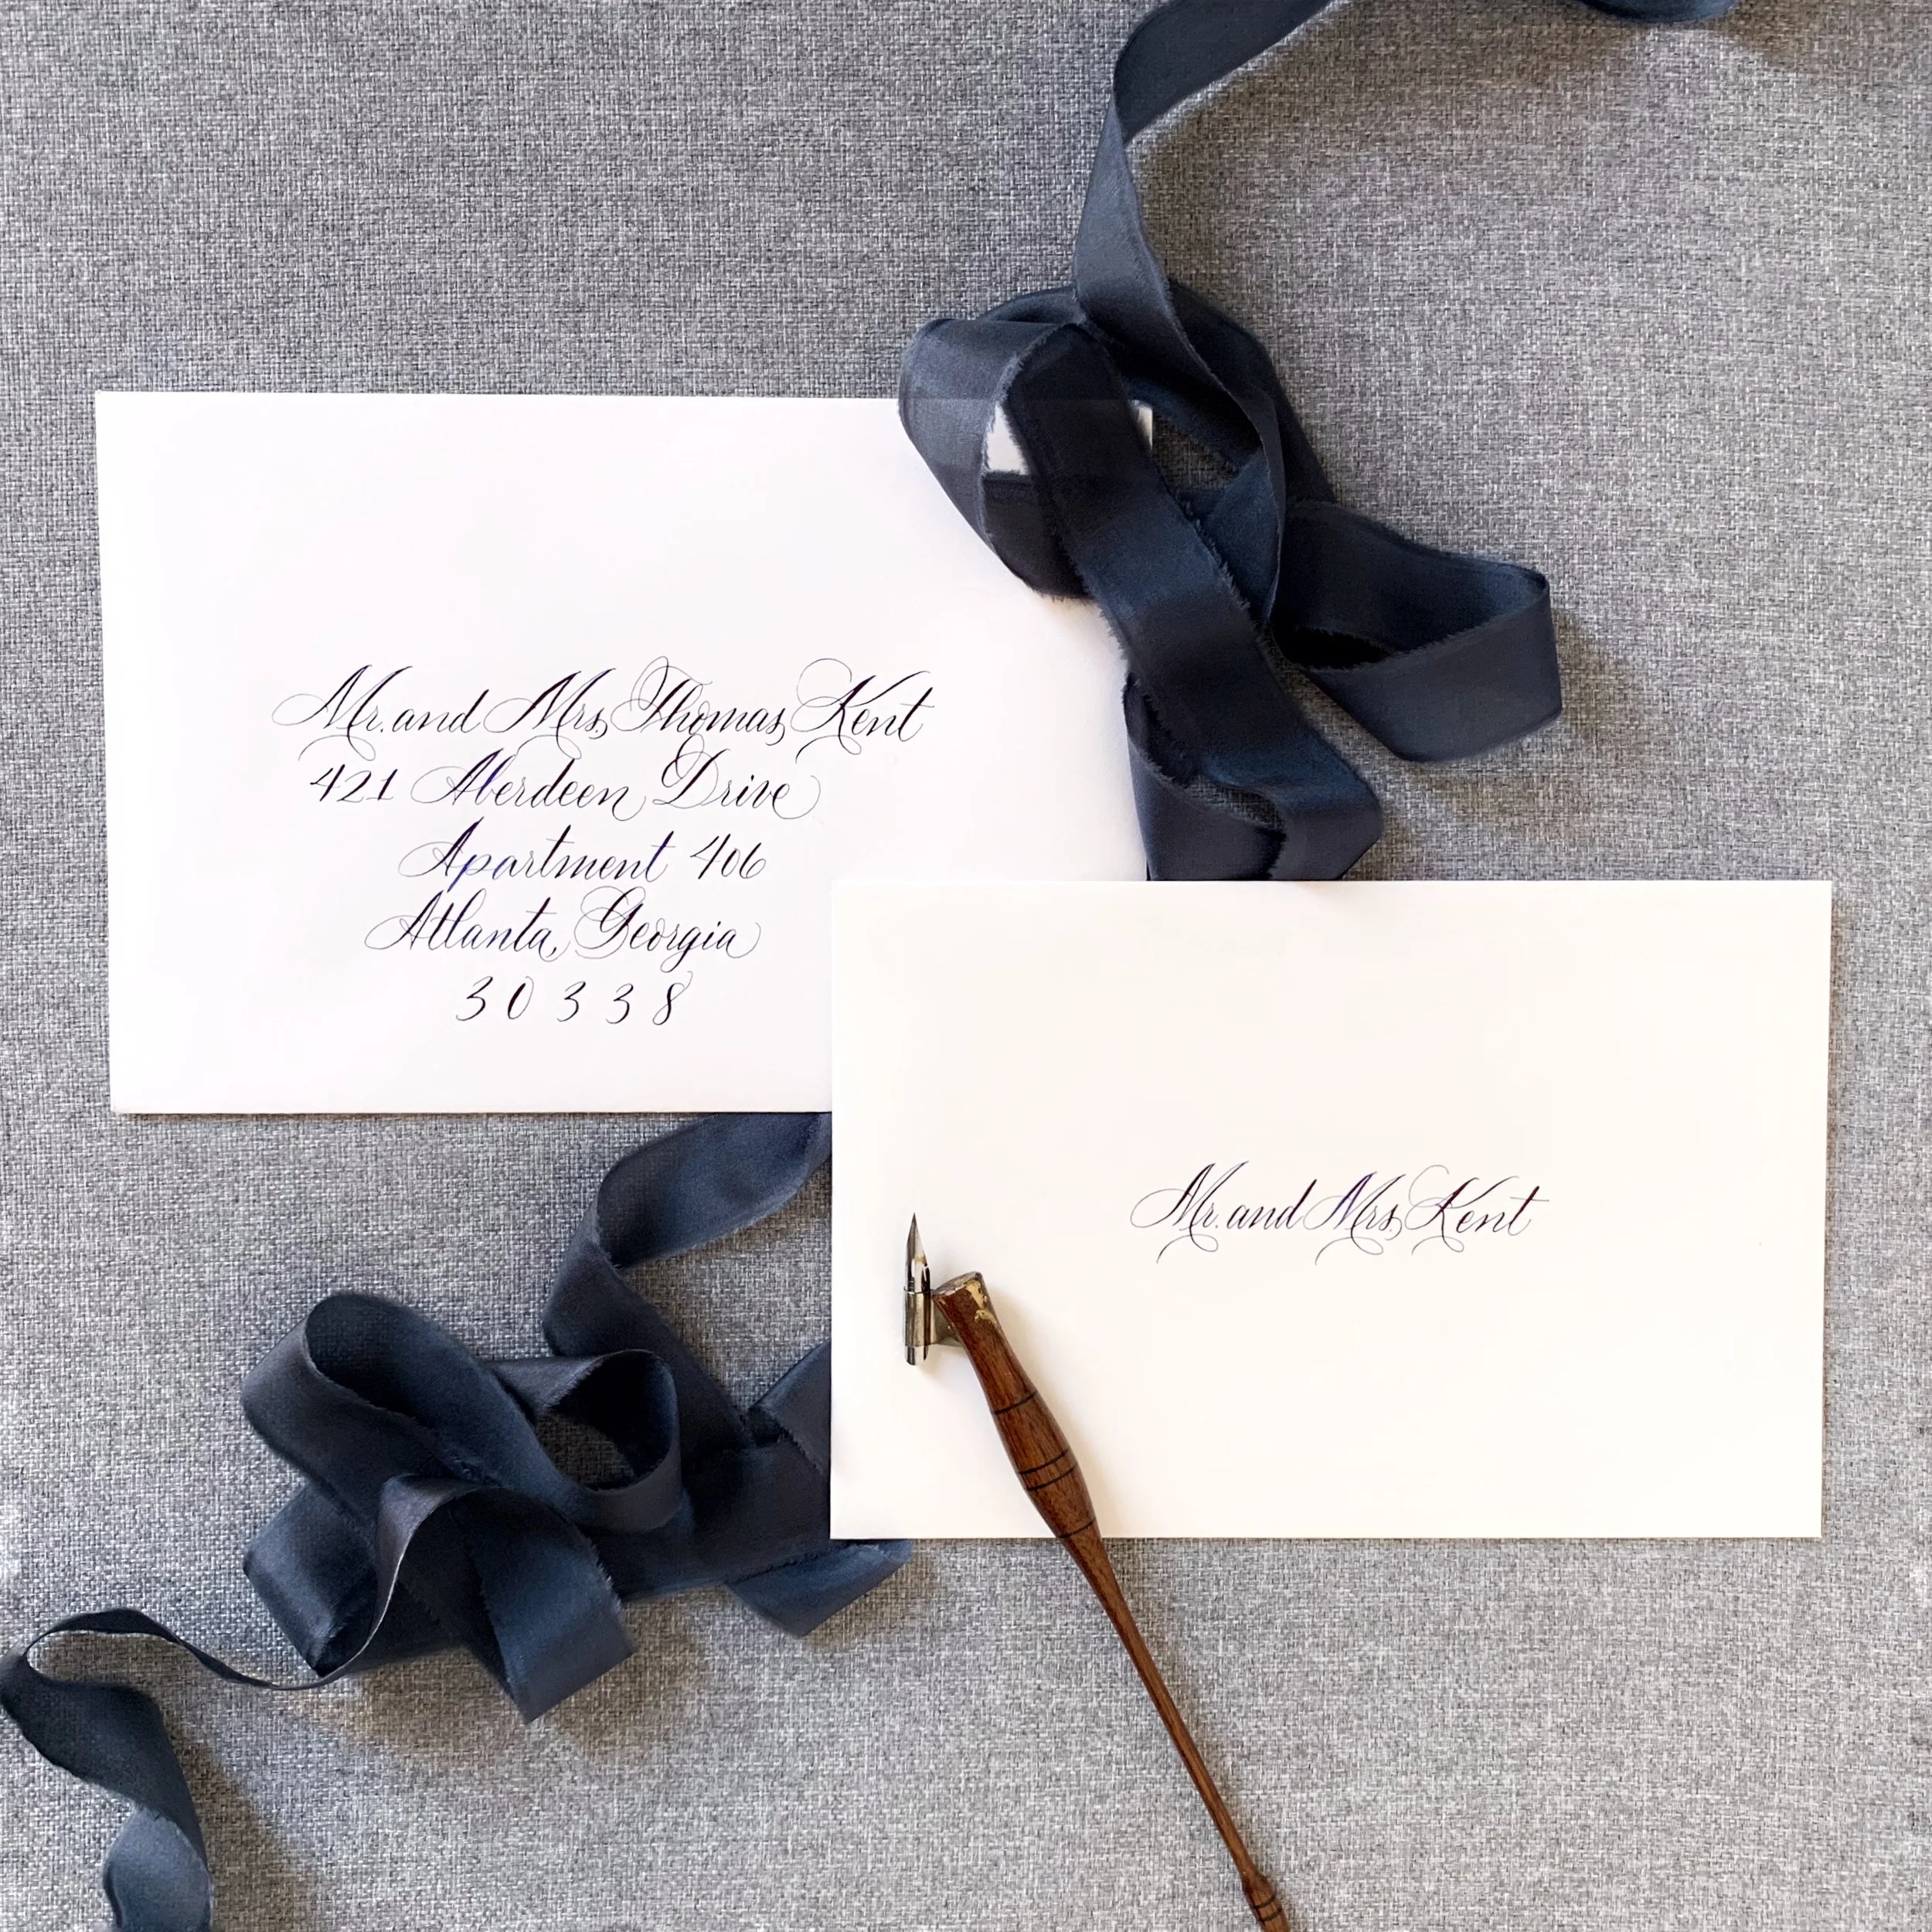 Mr. and Mrs. Thomas Kent
421 Aberdeen Drive
Apartment 406
Atlanta, Georgia
30338
Mr. and Mrs. Kent